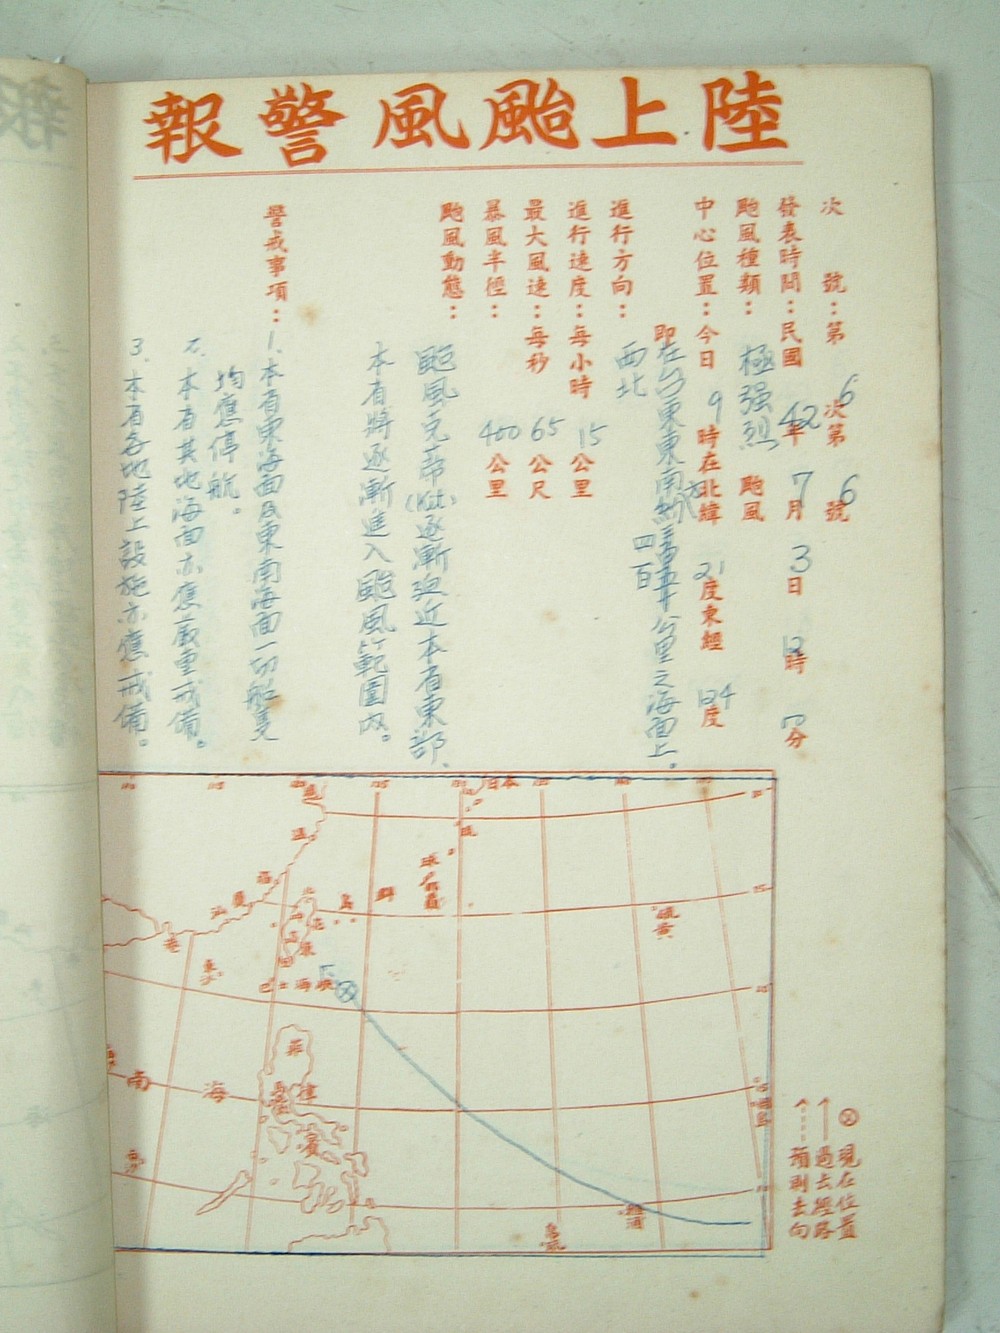 陸上颱風警報
次號：第6次第6號
發表時間：民國42年7月3日12時0分
颱風種類：極強烈颱風
中心位置：今日9時在北緯21度東經124度
即在台東東南約四百公里之海面上。
進行方向：西北
進行速度：每小時15公里
最大風速：每秒65公尺
暴風半徑：400公里
颱風動態：颱風克蒂(Kit)逐漸迫近本省東部、
本省將逐漸進入颱風範圍內。
警戒事項：1.本省東海面及東南海面一切船隻
均應停航。
2.本省其他海面亦應嚴重戒備。
3.本省各地陸上設施亦應戒備。
日本
琉
球
群
島
硫黃
福
廈
汕
港
東沙
台
東
巴士海峽
南海
菲律賓
馬尼
⊗現在位置
過去經路
預測去向